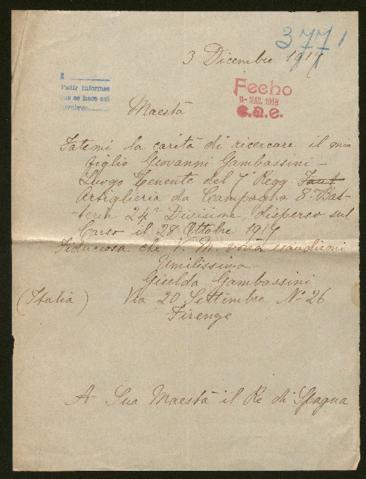 3771
3 Dicembre 1917
Pedir informes
que se hace así
Fecho
9-MAR. 1918
c.a.e.
Maestà
Fatemi la carità di ricercare il mio
figlio Giovanni Gambassini –
Luogo Tenente del 7° Regg.
Artiglieria da Campagna 8° Bat-
teria 24ª Divisione, disperso sul
Carso il 28 Ottobre 1917
Fiduciosa che V. M. vorrà esaudirmi
Umilissima
Giselda Gambassini
(Italia) Via 20 Settembre N° 26
Firenze
A Sua Maestà il Re di Spagna